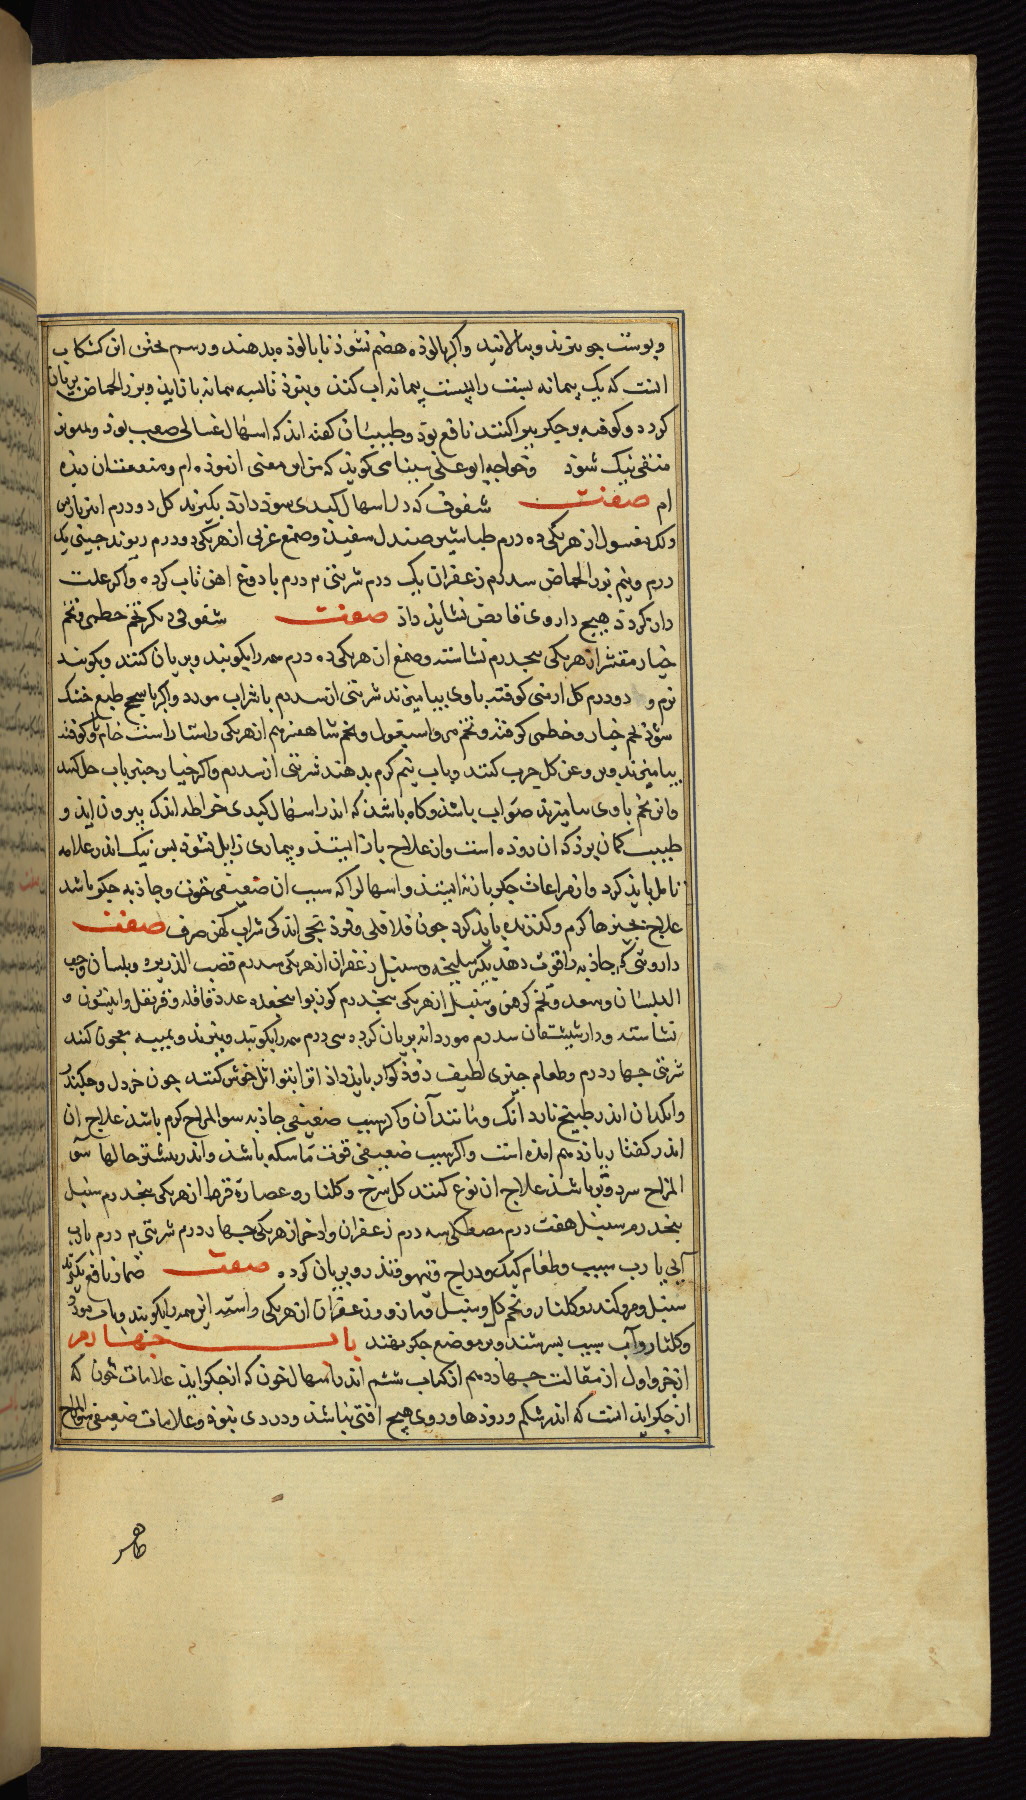 وپوست جو بپزند وبپالانید واکر پالوذه هضم نشوذ نا بالوذه بدهند ورسم پختن ان کشکاب
انست که یک پیمانه بست را بیست پیمانه اب کنند وبپزند تا بسه پیمانه باز اید وبزر الحماض بریان
کرده وکوفته بر جکر بپراکنند نافع بوذ وطبیبان کفته اند که اسهال غسالی صعب بوذ
منقی نیک شوذ وخواجه ابو علی سینا می کوید که من این معنی ازموذه ام ومنفعت ان دیذه
ام صفت سفوفی که در اسهال کبدی سوذ دارد بکیرند کل دو درم انبرباریس
ولک مغسول از هر یکی ده درم طباشیر صندل سفید وصمغ عربی از هر یکی دو درم ریوند جینی یک
درم ونیم بزر الحماض سه درم زعفران یک درم شربتی ۲ درم با دوغ اهن تاب کرده واکر علت
دراز کردد هیج داروی قابض نشاید داذ صفت سفوفی دیکر تخم خطمی وتخم
خیار مقشر از هر یکی پنج درم نشاسته وصمغ از هر یکی ده درم همه را بکوبند وبریان کنند وبکوبند
نرم و دو درم کل ارمنی کوفته با وی بیامیزند شربتی از سه درم با شراب مورد واکر با سحج طبع خشک
شوذ تخم خیار وخطمی کوفته وتخم مرو واسپغول وتخم شاهسفرم از هر یکی راستا راست خام ناکوفته
بیامیزند وبروغن کل جرب کنند وباب نیم کرم بدهند شربتی از سه درم واکر خیار جنبر باب حل کنند
وازین تخم با وی بیامیزند صواب باشد وکاه باشد که اندر اسهال کبدی خراطه اندک بیرون اید و
طبیب کمان برذ که ان روذه است وان علاج باز ایستذ وبیماری زایل نشوذ پس نیک اندر علامه
تامل باید کرد واز مراعات جکر باز نه ایستد واسهال را که سبب ان ضعیفی قوت جاذبه جکر باشد
علاج بچیزها کرم وکدازنده باید کرد جون فلافلی وقرذ بجی اندکی شراب کهن صرف صفت
داروئی که جاذبه را قوت دهد بکیر سلیخه وسنبل زعفران از هر یکی سه درم قصب الذریره وبلسان وحب
البلسان وسعد وتخم کرفس وسنبل از هر یکی پنج درم کوزبوا پنج عدد قاقله وقرنفل وانیسون و
نشاسته ودارشیشعان سه درم مورد دانه بریان کرده سی درم همه را بکوبند وبپزند وبمیبه معجون کنند
شربتی جهار درم وطعام جیزی لطیف زوذ کوار باید داذ انرا بتوابل خوش کننده جون خردل وجکندر
وانکدان اندر طبیخ ناردانک ومانند آن واکر سبب ضعیفی جاذبه سوء المزاج کرم باشد علاج ان
اندر کفتار یازدهم امده است واکر سبب ضعیفی قوت ماسکه باشد واندر بیشتر حالها سو
المزاج سرد وتر باشد علاج ان نوع کنند کل سرخ وکلنار وعصاره قرط از هر یکی پنج درم سنبل
پنج درم سنبل هفت درم مصطکی سه درم زعفران واذخر از هر یکی جهار درم شربتی ۲ درم باب
آبی یا رب سیب وطعام کبک ودراج وتیهو قند رو بریان کرده صفت ضماد نافع بکیرند
سنبل ومر وکندر وکلنار وتخم کل وسنبل ومازو وزعفران از هر یکی راسته این همه را بکوبند وباب مورد
وکلنار وآب سیب بسرشند وبر موضع جکر نهند باب جهارم
از جزو اول از مقالت جهاردهم از کتاب ششم اندر اسهال خون که از جکر اید علامات خون که
از جکر اید انست که اندر شکم وروذها وروی هیج افتی نباشد ودردی نبوذ وعلامات ضعیفی
طاهر